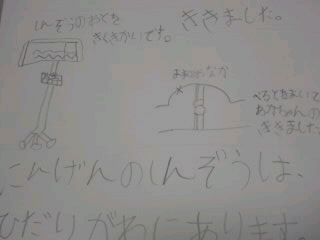 しんぞうのおとを
きくきかいです。
ききました。
おなか
べるとをまいて
あかちゃんの
ききました
にんげんのしんぞうは、
ひだりがわにあります。